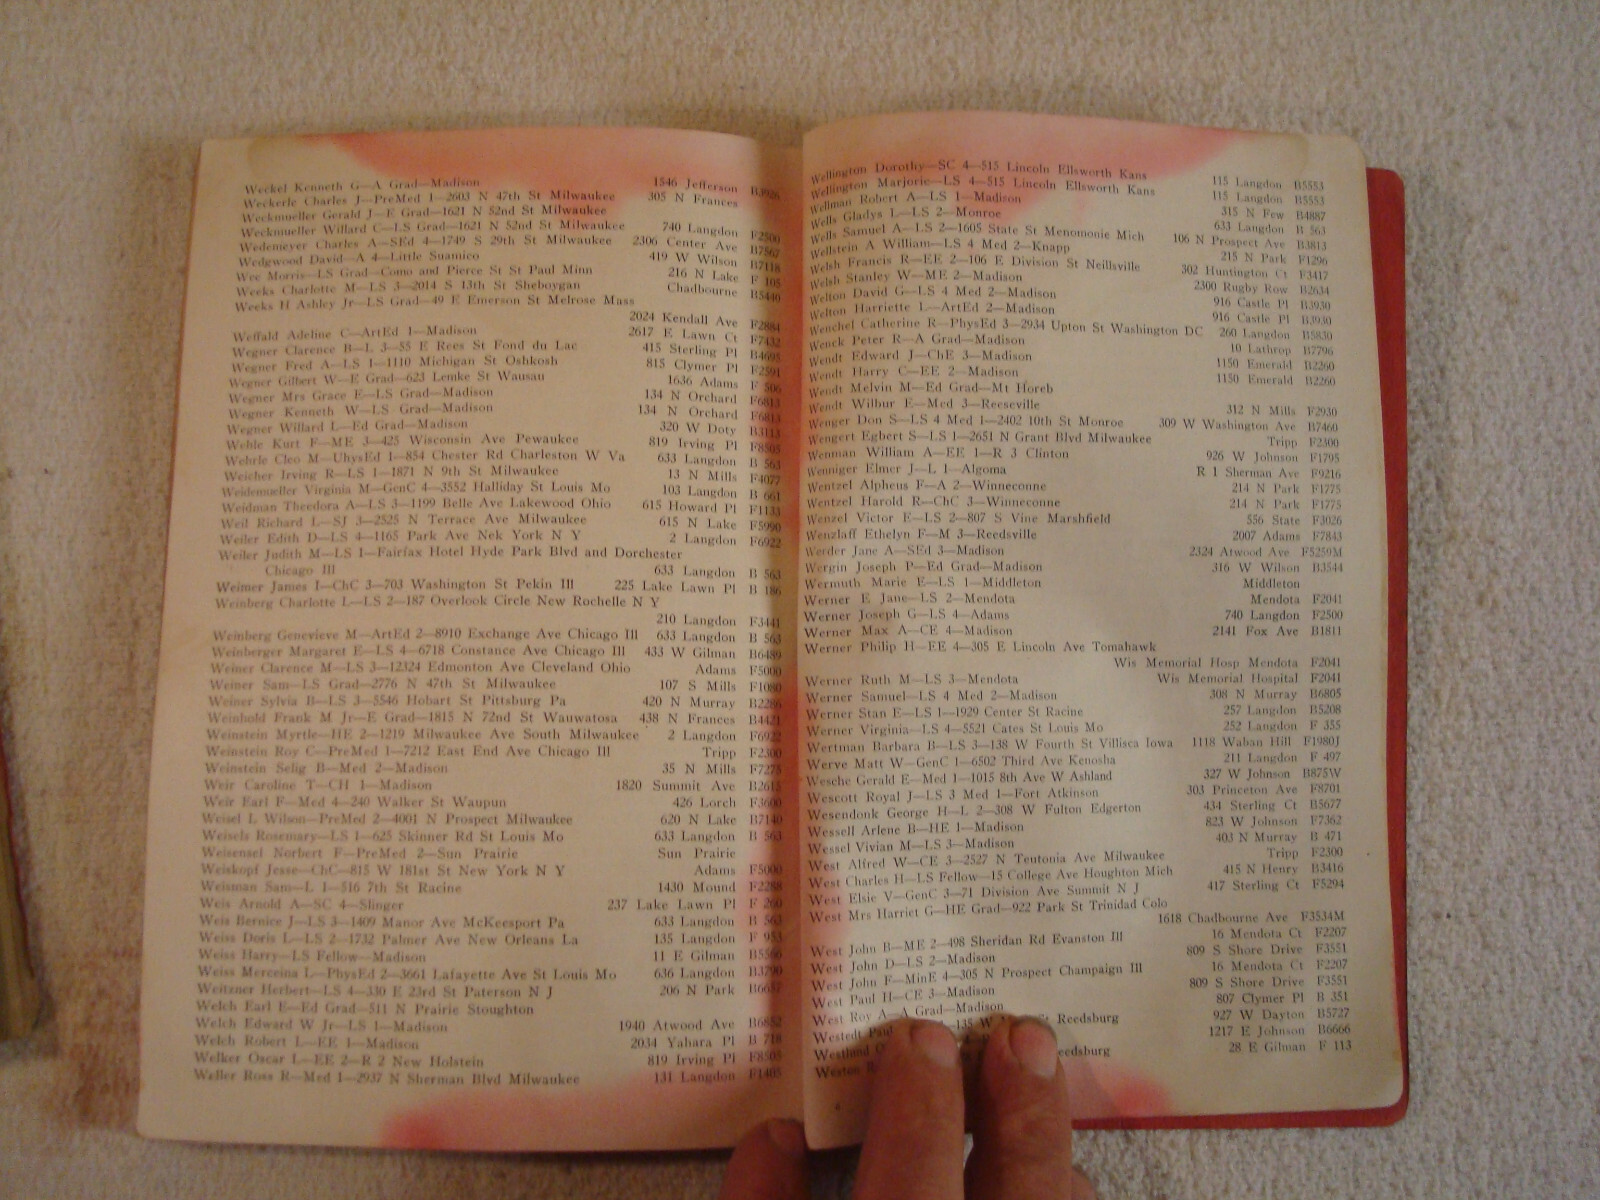 Weckel Kenneth G—A Grad—Madison 1546 Jefferson B3926
Weckerle Charles J—PreMed 1—2603 N 47th St Milwaukee 305 N Frances
Weckmueller Gerald J—E Grad—1621 N 52nd St Milwaukee
Weckmueller Willard C—LS Grad—1621 N 52nd St Milwaukee 740 Langdon F2500
Wedemeyer Charles A—SEd 4—1749 S 29th St Milwaukee 2306 Center Ave B7567
Wedgwood David—A 4—Little Suamico 419 W Wilson B7118
Wee Morris—LS Grad—Como and Pierce St St Paul Minn 216 N Lake F 105
Weeks Charlotte M—LS 3—2014 S 13th St Sheboygan Chadbourne B5440
Weeks H Ashley Jr—LS Grad—49 E Emerson St Melrose Mass
2024 Kendall Ave F2884
Weffald Adeline C—ArtEd 1—Madison 2617 E Lawn Ct F7432
Wegner Clarence B—L 3—55 E Rees St Fond du Lac 415 Sterling Pl B4695
Wegner Fred A—LS 1—1110 Michigan St Oshkosh 815 Clymer Pl F2591
Wegner Gilbert W—E Grad—623 Lemke St Wausau 1636 Adams F 506
Wegner Mrs Grace E—LS Grad—Madison 134 N Orchard F6813
Wegner Kenneth W—LS Grad—Madison 134 N Orchard F6813
Wegner Willard L—Ed Grad—Madison 320 W Doty B3113
Wehle Kurt F—ME 3—425 Wisconsin Ave Pewaukee 819 Irving Pl F8505
Wehrle Cleo M—UhysEd 1—854 Chester Rd Charleston W Va 633 Langdon B 563
Weicher Irving R—LS 1—1871 N 9th St Milwaukee 13 N Mills F4077
Weidemueller Virginia M—GenC 4—3552 Halliday St Louis Mo 103 Langdon B 661
Weidman Theedora A—LS 3—1199 Belle Ave Lakewood Ohio 615 Howard Pl F1133
Weil Richard L—SJ 3—2525 N Terrace Ave Milwaukee 615 N Lake F5990
Weiler Edith D—LS 4—1165 Park Ave Nek York N Y 2 Langdon F6922
Weiler Judith M—LS 1—Fairfax Hotel Hyde Park Blvd and Dorchester
Chicago Ill 633 Langdon B 563
Weimer James I—ChC 3—703 Washington St Pekin Ill 225 Lake Lawn Pl B 186
Weinberg Charlotte L—LS 2—187 Overlook Circle New Rochelle N Y
210 Langdon F3441
Weinberg Genevieve M—ArtEd 2—8910 Exchange Ave Chicago Ill 633 Langdon B 563
Weinberger Margaret E—LS 4—6718 Constance Ave Chicago Ill 433 W Gilman B6489
Weiner Clarence M—LS 3—12324 Edmonton Ave Cleveland Ohio Adams F5000
Weiner Sam—LS Grad—2776 N 47th St Milwaukee 107 S Mills F1080
Weiner Sylvia B—LS 3—5546 Hobart St Pittsburg Pa 420 N Murray B2286
Weinhold Frank M Jr—E Grad—1815 N 72nd St Wauwatosa 438 N Frances B4421
Weinstein Myrtle—HE 2—1219 Milwaukee Ave South Milwaukee 2 Langdon F6922
Weinstein Roy C—PreMed 1—7212 East End Ave Chicago Ill Tripp F2300
Weinstein Selig B—Med 2—Madison 35 N Mills F7275
Weir Caroline T—CH 1—Madison 1820 Summit Ave B2615
Weir Earl F—Med 4—240 Walker St Waupun 426 Lorch F3600
Weisel L Wilson—PreMed 2—4001 N Prospect Milwaukee 620 N Lake B7140
Weisels Rosemary—LS 1—625 Skinner Rd St Louis Mo 633 Langdon B 563
Weisensel Norbert F—PreMed 2—Sun Prairie Sun Prairie
Weiskopf Jesse—ChC—815 W 181st St New York N Y Adams F5000
Weisman Sam—L 1—516 7th St Racine 1430 Mound F2288
Weis Arnold A—SC 4—Slinger 237 Lake Lawn Pl F 260
Weis Bernice J—LS 3—1409 Manor Ave McKeesport Pa 633 Langdon B 563
Weiss Doris L—LS 2—1732 Palmer Ave New Orleans La 135 Langdon F 953
Weiss Harry—LS Fellow—Madison 11 E Gilman B5566
Weiss Merceina L—PhysEd 2—3661 Lafayette Ave St Louis Mo 636 Langdon B3790
Weitzner Herbert—LS 4—330 E 23rd St Paterson N J 206 N Park
Welch Earl E—Ed Grad—511 N Prairie Stoughton
Welch Edward W Jr—LS 1—Madison 1940 Atwood Ave B6852
Welch Robert L—EE 1—Madison 2034 Yahara Pl B 718
Welker Oscar L—EE 2—R 2 New Holstein 819 Irving Pl F8505
Weller Ross R—Med 1—2937 N Sherman Blvd Milwaukee 131 Langdon F1405
Wellington Dorothy—SC 4—515 Lincoln Ellsworth Kans 115 Langdon B5553
Wellington Marjorie—LS 4—515 Lincoln Ellsworth Kans 115 Langdon B5553
Wellman Robert A—LS 1—Madison 315 N Few B4887
Wells Gladys L—LS 2—Monroe 633 Langdon B 563
Wells Samuel A—LS 2—1605 State St Menomonie Mich 106 N Prospect Ave B3813
Wellstein A William—LS 4 Med 2—Knapp 215 N Park F1296
Welsh Francis R—EE 2—106 E Division St Neillsville 302 Huntington Ct F3417
Welsh Stanley W—ME 2—Madison 2300 Rugby Row B2634
Welton David G—LS 4 Med 2—Madison 916 Castle Pl B3930
Welton Harriette L—ArtEd 2—Madison 916 Castle Pl B3930
Wenchel Catherine R—PhysEd 3—2934 Upton St Washington DC 260 Langdon B5830
Wenck Peter R—A Grad—Madison 10 Lathrop B7796
Wendt Edward J—ChE 3—Madison 1150 Emerald B2260
Wendt Harry C—EE 2—Madison 1150 Emerald B2260
Wendt Melvin M—Ed Grad—Mt Horeb
Wendt Wilbur E—Med 3—Reeseville 312 N Mills F2930
Wenger Don S—LS 4 Med 1—2402 10th St Monroe 309 W Washington Ave B7460
Wengert Egbert S—LS 1—2651 N Grant Blvd Milwaukee Tripp F2300
Wenman William A—EE 1—R 3 Clinton 926 W Johnson F1795
Wenniger Elmer J—L 1—Algoma R 1 Sherman Ave F9216
Wentzel Alpheus F—A 2—Winneconne 214 N Park F1775
Wentzel Harold R—ChC 3—Winneconne 214 N Park F1775
Wenzel Victor E—LS 2—807 S Vine Marshfield 556 State F3026
Wenzlaff Ethelyn F—M 3—Reedsville 2007 Adams F7843
Werder Jane A—SEd 3—Madison 2324 Atwood Ave F5259M
Wergin Joseph P—Ed Grad—Madison 316 W Wilson B3544
Wermuth Marie E—LS 1—Middleton Middleton
Werner E Jane—LS 2—Mendota Mendota F2041
Werner Joseph G—LS 4—Adams 740 Langdon F2500
Werner Max A—CE 4—Madison 2141 Fox Ave B1811
Werner Philip H—EE 4—305 E Lincoln Ave Tomahawk
Wis Memorial Hosp Mendota F2041
Werner Ruth M—LS 3—Mendota Wis Memorial Hospital F2041
Werner Samuel—LS 4 Med 2—Madison 308 N Murray B6805
Werner Stan E—LS 1—1929 Center St Racine 257 Langdon B5208
Werner Virginia—LS 4—5521 Cates St Louis Mo 252 Langdon F 355
Wertman Barbara B—LS 3—138 W Fourth St Villisca Iowa 1118 Waban Hill F1980J
Werve Matt W—GenC 1—6502 Third Ave Kenosha 211 Langdon F 497
Wesche Gerald E—Med 1—1015 8th Ave W Ashland 327 W Johnson B875W
Wescott Royal J—LS 3 Med 1—Fort Atkinson 303 Princeton Ave F8701
Wesendonk George H—L 2—308 W Fulton Edgerton 434 Sterling Ct B5677
Wessell Arlene B—HE 1—Madison 823 W Johnson F7362
Wessel Vivian M—LS 3—Madison 403 N Murray B 471
West Alfred W—CE 3—2527 N Teutonia Ave Milwaukee Tripp F2300
West Charles H—LS Fellow—15 College Ave Houghton Mich 415 N Henry B3416
West Elsie V—GenC 3—71 Division Ave Summit N J 417 Sterling Ct F5294
West Mrs Harriet G—HE Grad—922 Park St Trinidad Colo
1618 Chadbourne Ave F3534M
West John B—ME 2—498 Sheridan Rd Evanston Ill 16 Mendota Ct F2207
West John D—LS 2—Madison 809 S Shore Drive F3551
West John F—MinE 4—305 N Prospect Champaign Ill 16 Mendota Ct F2207
West Paul H—CE 3—Madison 809 S Shore Drive F3551
West Roy A—A Grad—Madison 807 Clymer Pl B 351
Westedt Paul 135 W St Reedsburg 927 W Dayton B5727
Westlund 1217 E Johnson B6666
Weston Reedsburg 28 E Gilman F 113